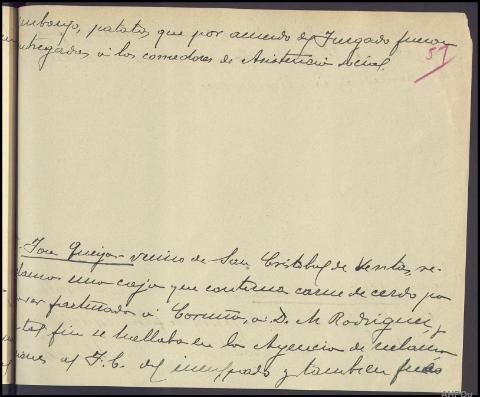 mbargo, patatas que por acuerdo del Juzgado fueron
ntregadas a los comedores de Asistencia social.
57
Jose Queijo - vecino de San Cristobal de Ventas, re-
clamos una caja que contenia carne de cerdo por
facturada a Coruña, a D. M. Rodriguez y
tal fin se hallaba en la Agencia de
al F. C. del y tambien
AHPOu